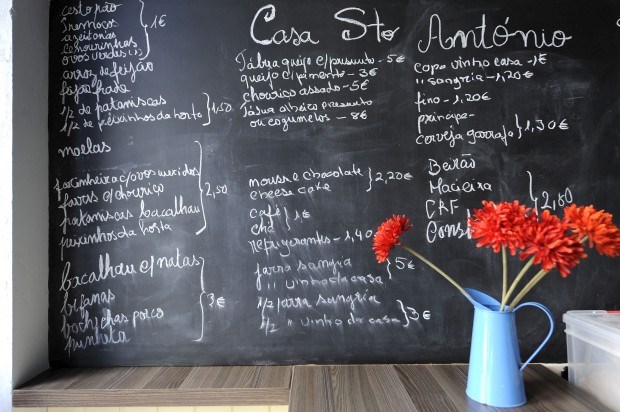 Casa Sto António
cesto pão
tremoços
azeitonas
cenourinhas
ovos verdes (1)
} 1€
arroz de feijão
feijoada
1/2 de pataniscas
1/2 de peixinhos da horta
} 1,50
moelas
favas c/ chouriço
pataniscas bacalhau
peixinhos da horta
} 2,50
bacalhau c/ natas
bifanas
porco
punheta
} 3€
Tábua queijo c/ presunto - 5€
queijo c/ pimento - 3€
chouriço assado - 5€
Tábua presunto
ou cogumelos - 8€
mousse chocolate
cheese cake
} 2,20€
café
chá
} 1€
refrigerantes - 1,40
jarra sangria
" vinho da casa
} 5€
1/2 jarra sangria
1/2 " vinho da casa
} 3€
copo vinho casa - 1€
" sangria - 1,20€
fino - 1,20€
príncipe -
cerveja garrafa
} 1,30€
Beirão
Macieira
CRF
} 2,80